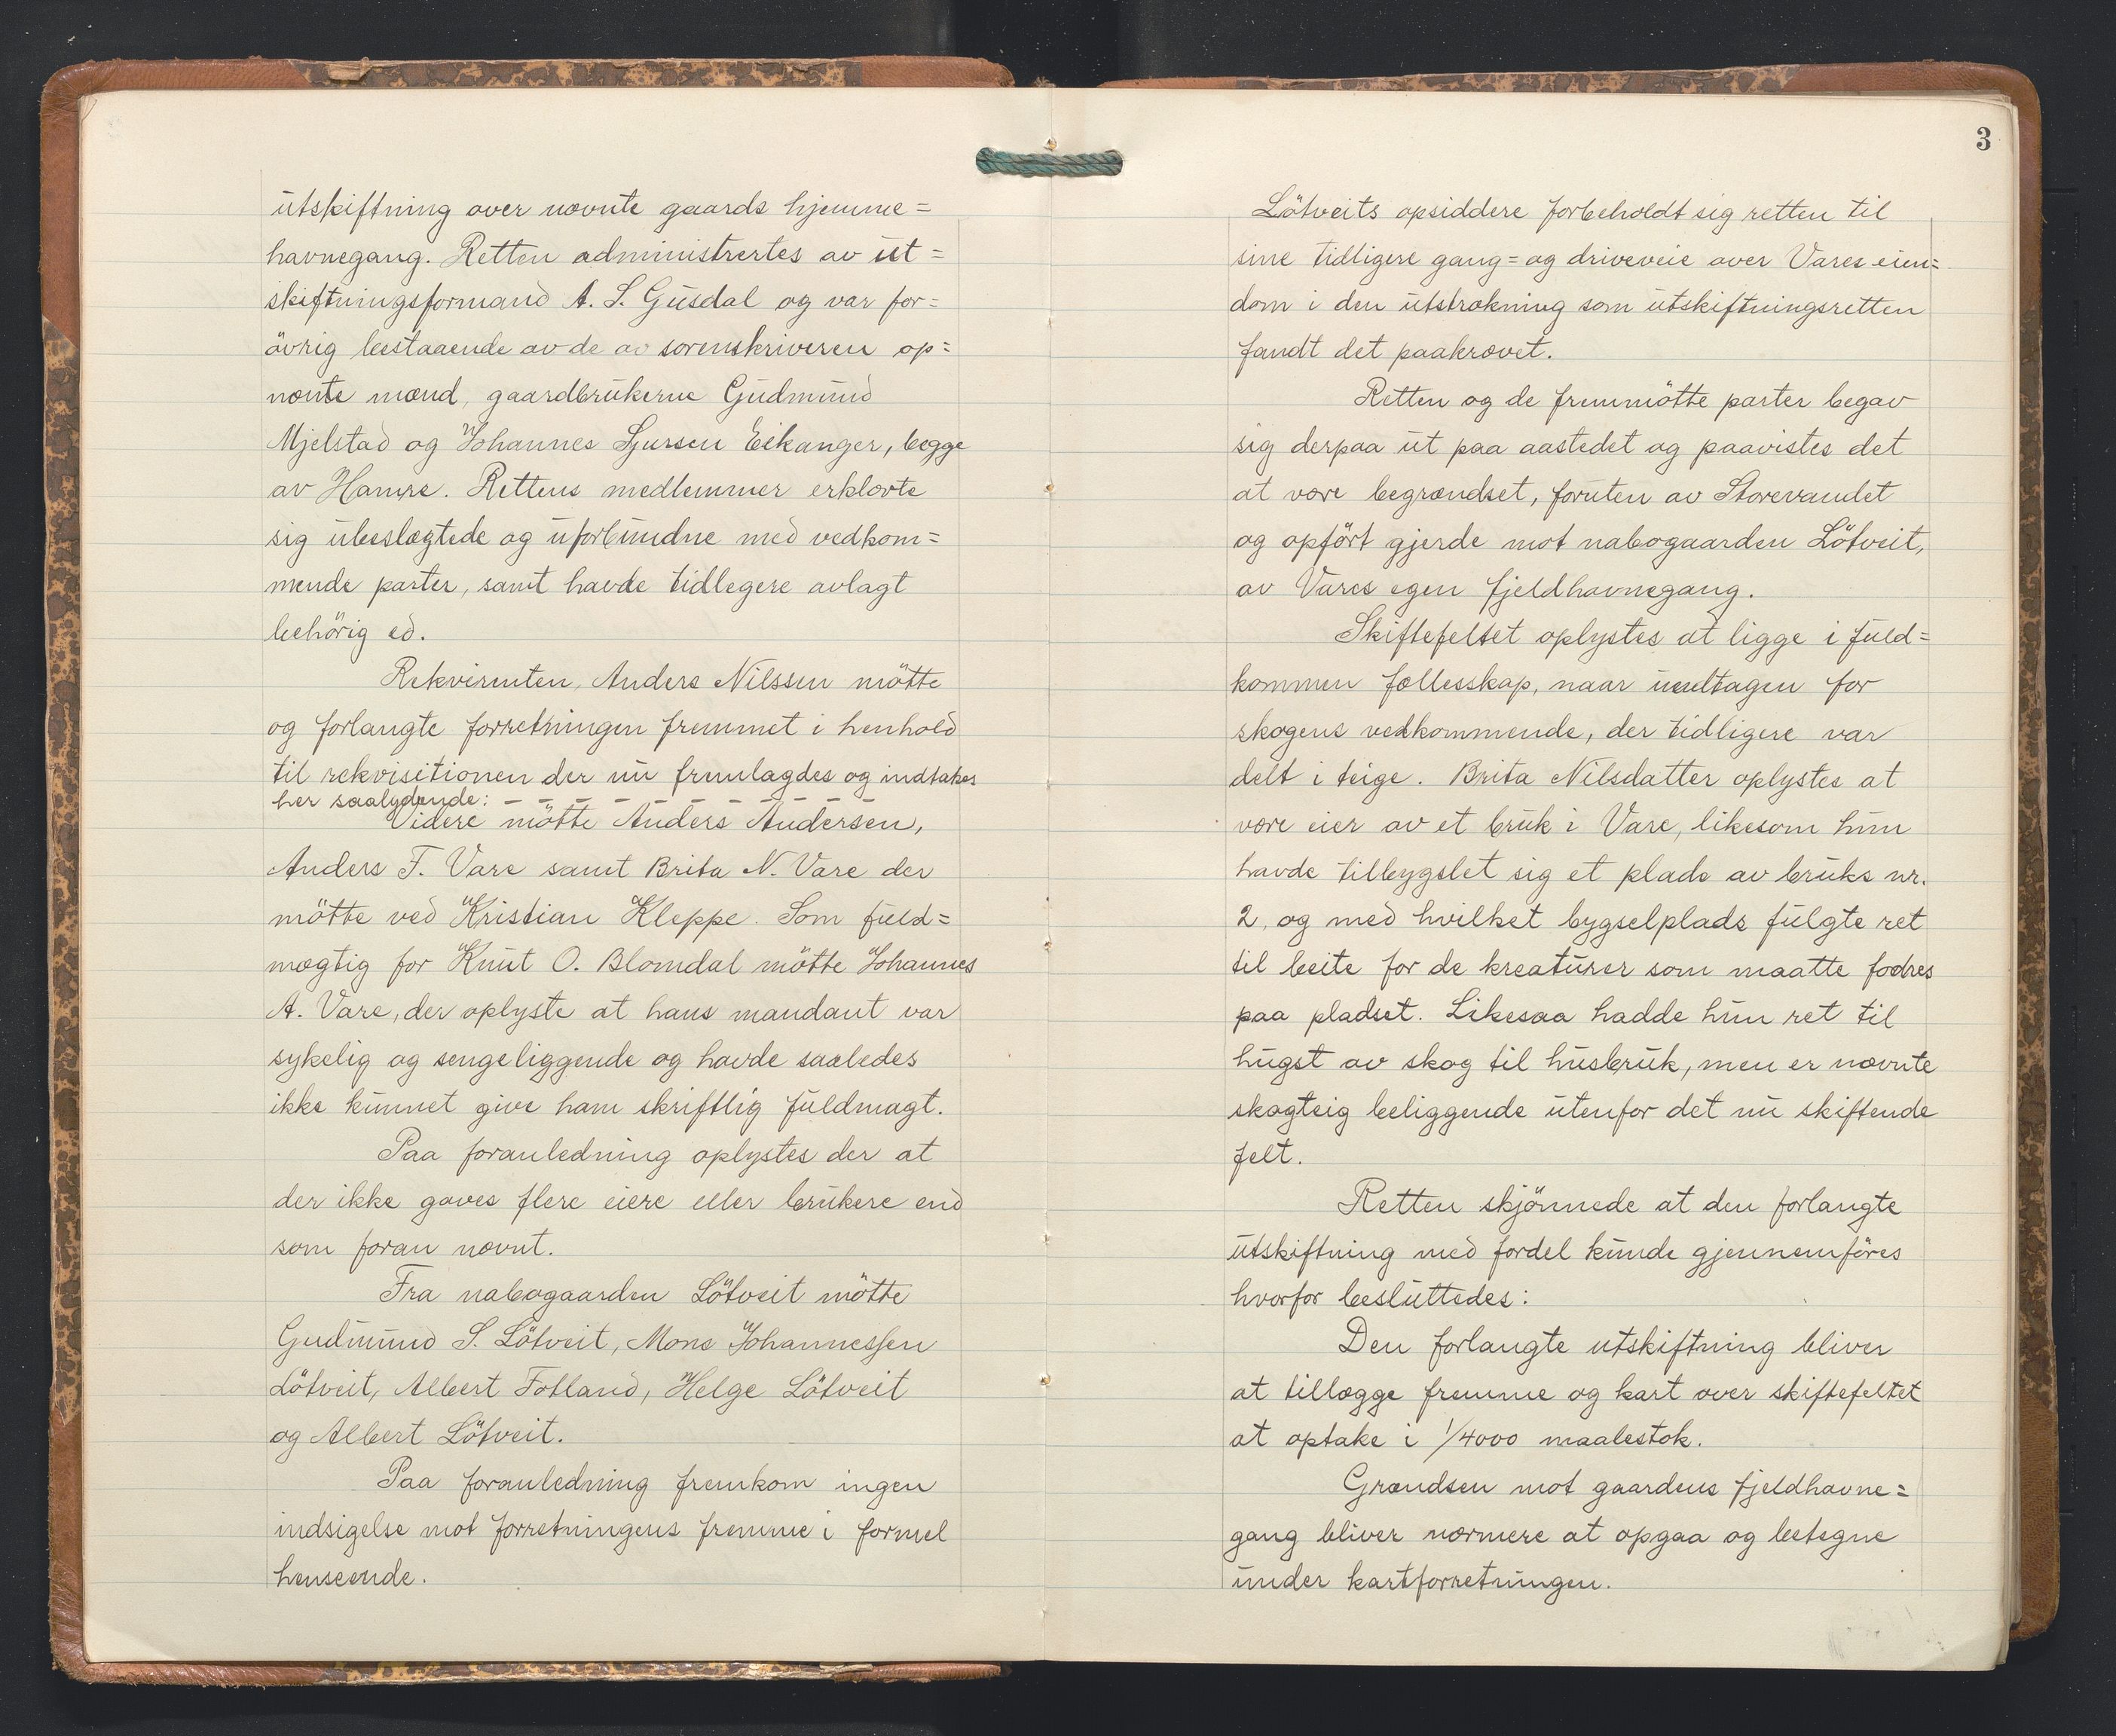 utskiftning over nævnte gaards hjemme=
havnegang. Retten administrertes av ut=
skiftningsformand A. S. Gusdal og var for=
övrig bestaaende av de av sorenskriveren op=
nævnte mænd, gaardbrukerne Gudmund
Mjelstad og Johannes Sjursen Eikanger, begge
av Hamre. Rettens medlemmer erklærte
sig ubeslægtede og uforbundne med vedkom=
mende parter, samt havde tidlegere avlagt
behörig ed.
Rekvirenten, Anders Nilssen mötte
og forlangte forretningen fremmet i henhold
til rekvisitionen der nu fremlagdes og indtakes
her saalydende: – – – – – – – – – –
Videre mötte Anders Andersen,
Anders T. Vare samt Brita N. Vare der
mötte ved Kristian Kleppe. Som fuld=
mægtig for Knut O. Blomdal mötte Johannes
A. Vare, der oplyste at hans mandant var
sykelig og sengeliggende og havde saaledes
ikke kunnet give ham skriftlig fuldmagt.
Paa foranledning oplystes der at
der ikke gaves flere eiere eller brukere end
som foran nævnt.
Fra nabogaarden Lötveit mötte
Gudmund S. Lötveit, Mons Johannessen
Lötveit, Albert Fotland, Helge Lötveit
og Albert Lötveit.
Paa foranledning fremkom ingen
indsigelse mot forretningens fremme i formel
henseende.
3
Lötveits opsiddere forbeholdt sig retten til
sine tidligere gang= og driveveie over Vares eien=
dom i den utstrækning som utskiftningsretten
fandt det paakrævet.
Retten og de fremmötte parter begav
sig derpaa ut paa aastedet og paavistes det
at være begrændset, foruten av Storevandet
og opfört gjerde mot nabogaarden Lötveit,
av Vares egen fjeldhavnegang.
Skiftefeltet oplystes at ligge i fuld=
kommen fællesskap, naar undtagen for
skogens vedkommende, der tidligere var
delt i teige. Brita Nilsdatter oplystes at
være eier av et bruk i Vare, likesom hun
havde tilbygslet sig et plads av bruks nr.
2, og med hvilket bygselplads fulgte ret
til beite for de kreaturer som maatte fodres
paa pladset. Likesaa hadde hun ret til
hugst av skog til husbruk, men er nævnte
skogteig beliggende utenfor det nu skiftende
felt.
Retten skjönnede at den forlangte
utskiftning med fordel kunde gjennemföres
hvorfor besluttedes:
Den forlangte utskiftning bliver
at tillægge fremme og kart over skiftefeltet
at optake i 1/4000 maalestok.
Grændsen mot gaardens fjeldhavne=
gang bliver nærmere at opgaa og betegne
under kartforretningen.